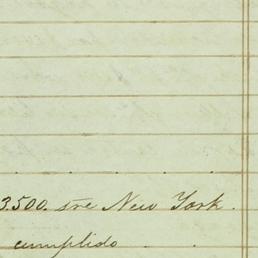 3.500. sre New York.
cumplido